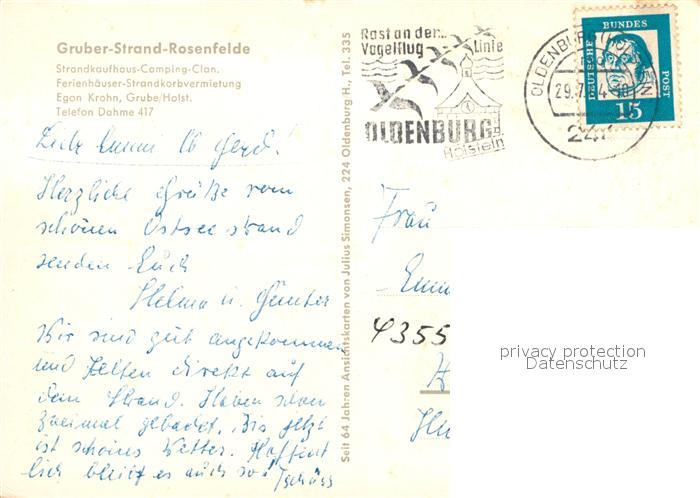 Gruber-Strand-Rosenfelde
Strandkaufhaus-Camping-Clan.
Ferienhäuser-Strandkorbvermietung
Egon Krohn, Grube/Holst.
Telefon Dahme 417
Gerd!
Herzliche Grüße vom
schönen Ostseestrand
senden Euch
Helma u. Günter
Wir sind gut angekommen
und zelten direkt auf
dem Strand. Haben schon
zweimal gebadet. Bis jetzt
ist schönes Wetter. Hoffent
lich bleibt es auch so. Tschüss
Seit 64 Jahren Ansichtskarten von Julius Simonsen, 224 Oldenburg H., Tel. 335
Rast an der...
Vogelflug Linie
OLDENBURG
Holstein
OLDENBURG (HOLSTEIN)
29.7.
DEUTSCHE BUNDES POST
15
Frau
4355
privacy protection
Datenschutz